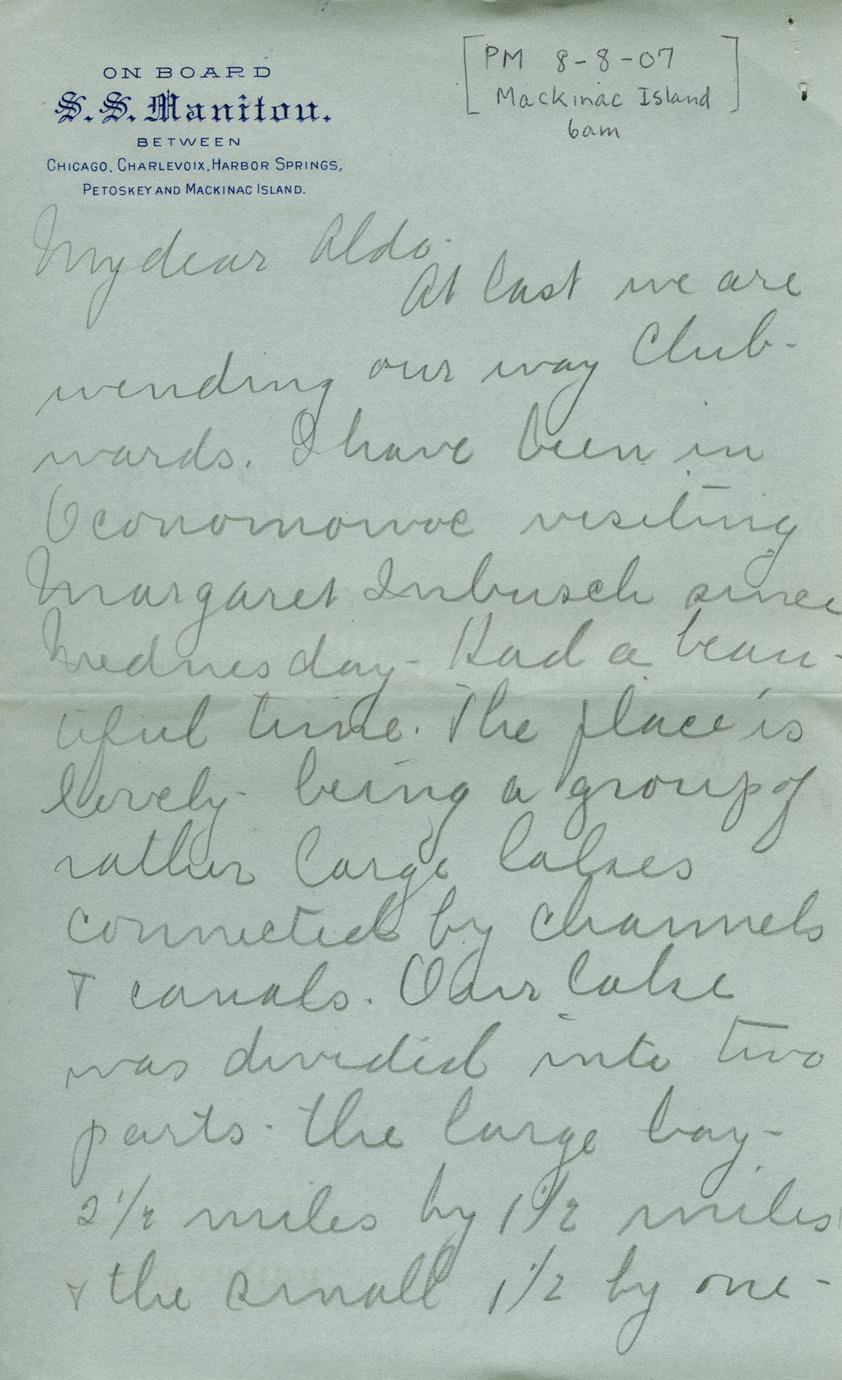 ON BOARD
S.S. Manitou.
BETWEEN
CHICAGO, CHARLEVOIX, HARBOR SPRINGS,
PETOSKEY AND MACKINAC ISLAND.
[PM 8-8-07
Mackinac Island]
6am
My dear Aldo-
At last we are
wending our way Club-
wards. I have been in
Oconomowoc visiting
Margaret Inbusch since
Wednesday- Had a beau-
tiful time. The place is
lovely- being a group of
rather large lakes
connected by channels
& canals. Our lake
was divided into two
parts- the large bay-
2 1/2 miles by 1 1/2 miles
& the small 1 1/2 by one-